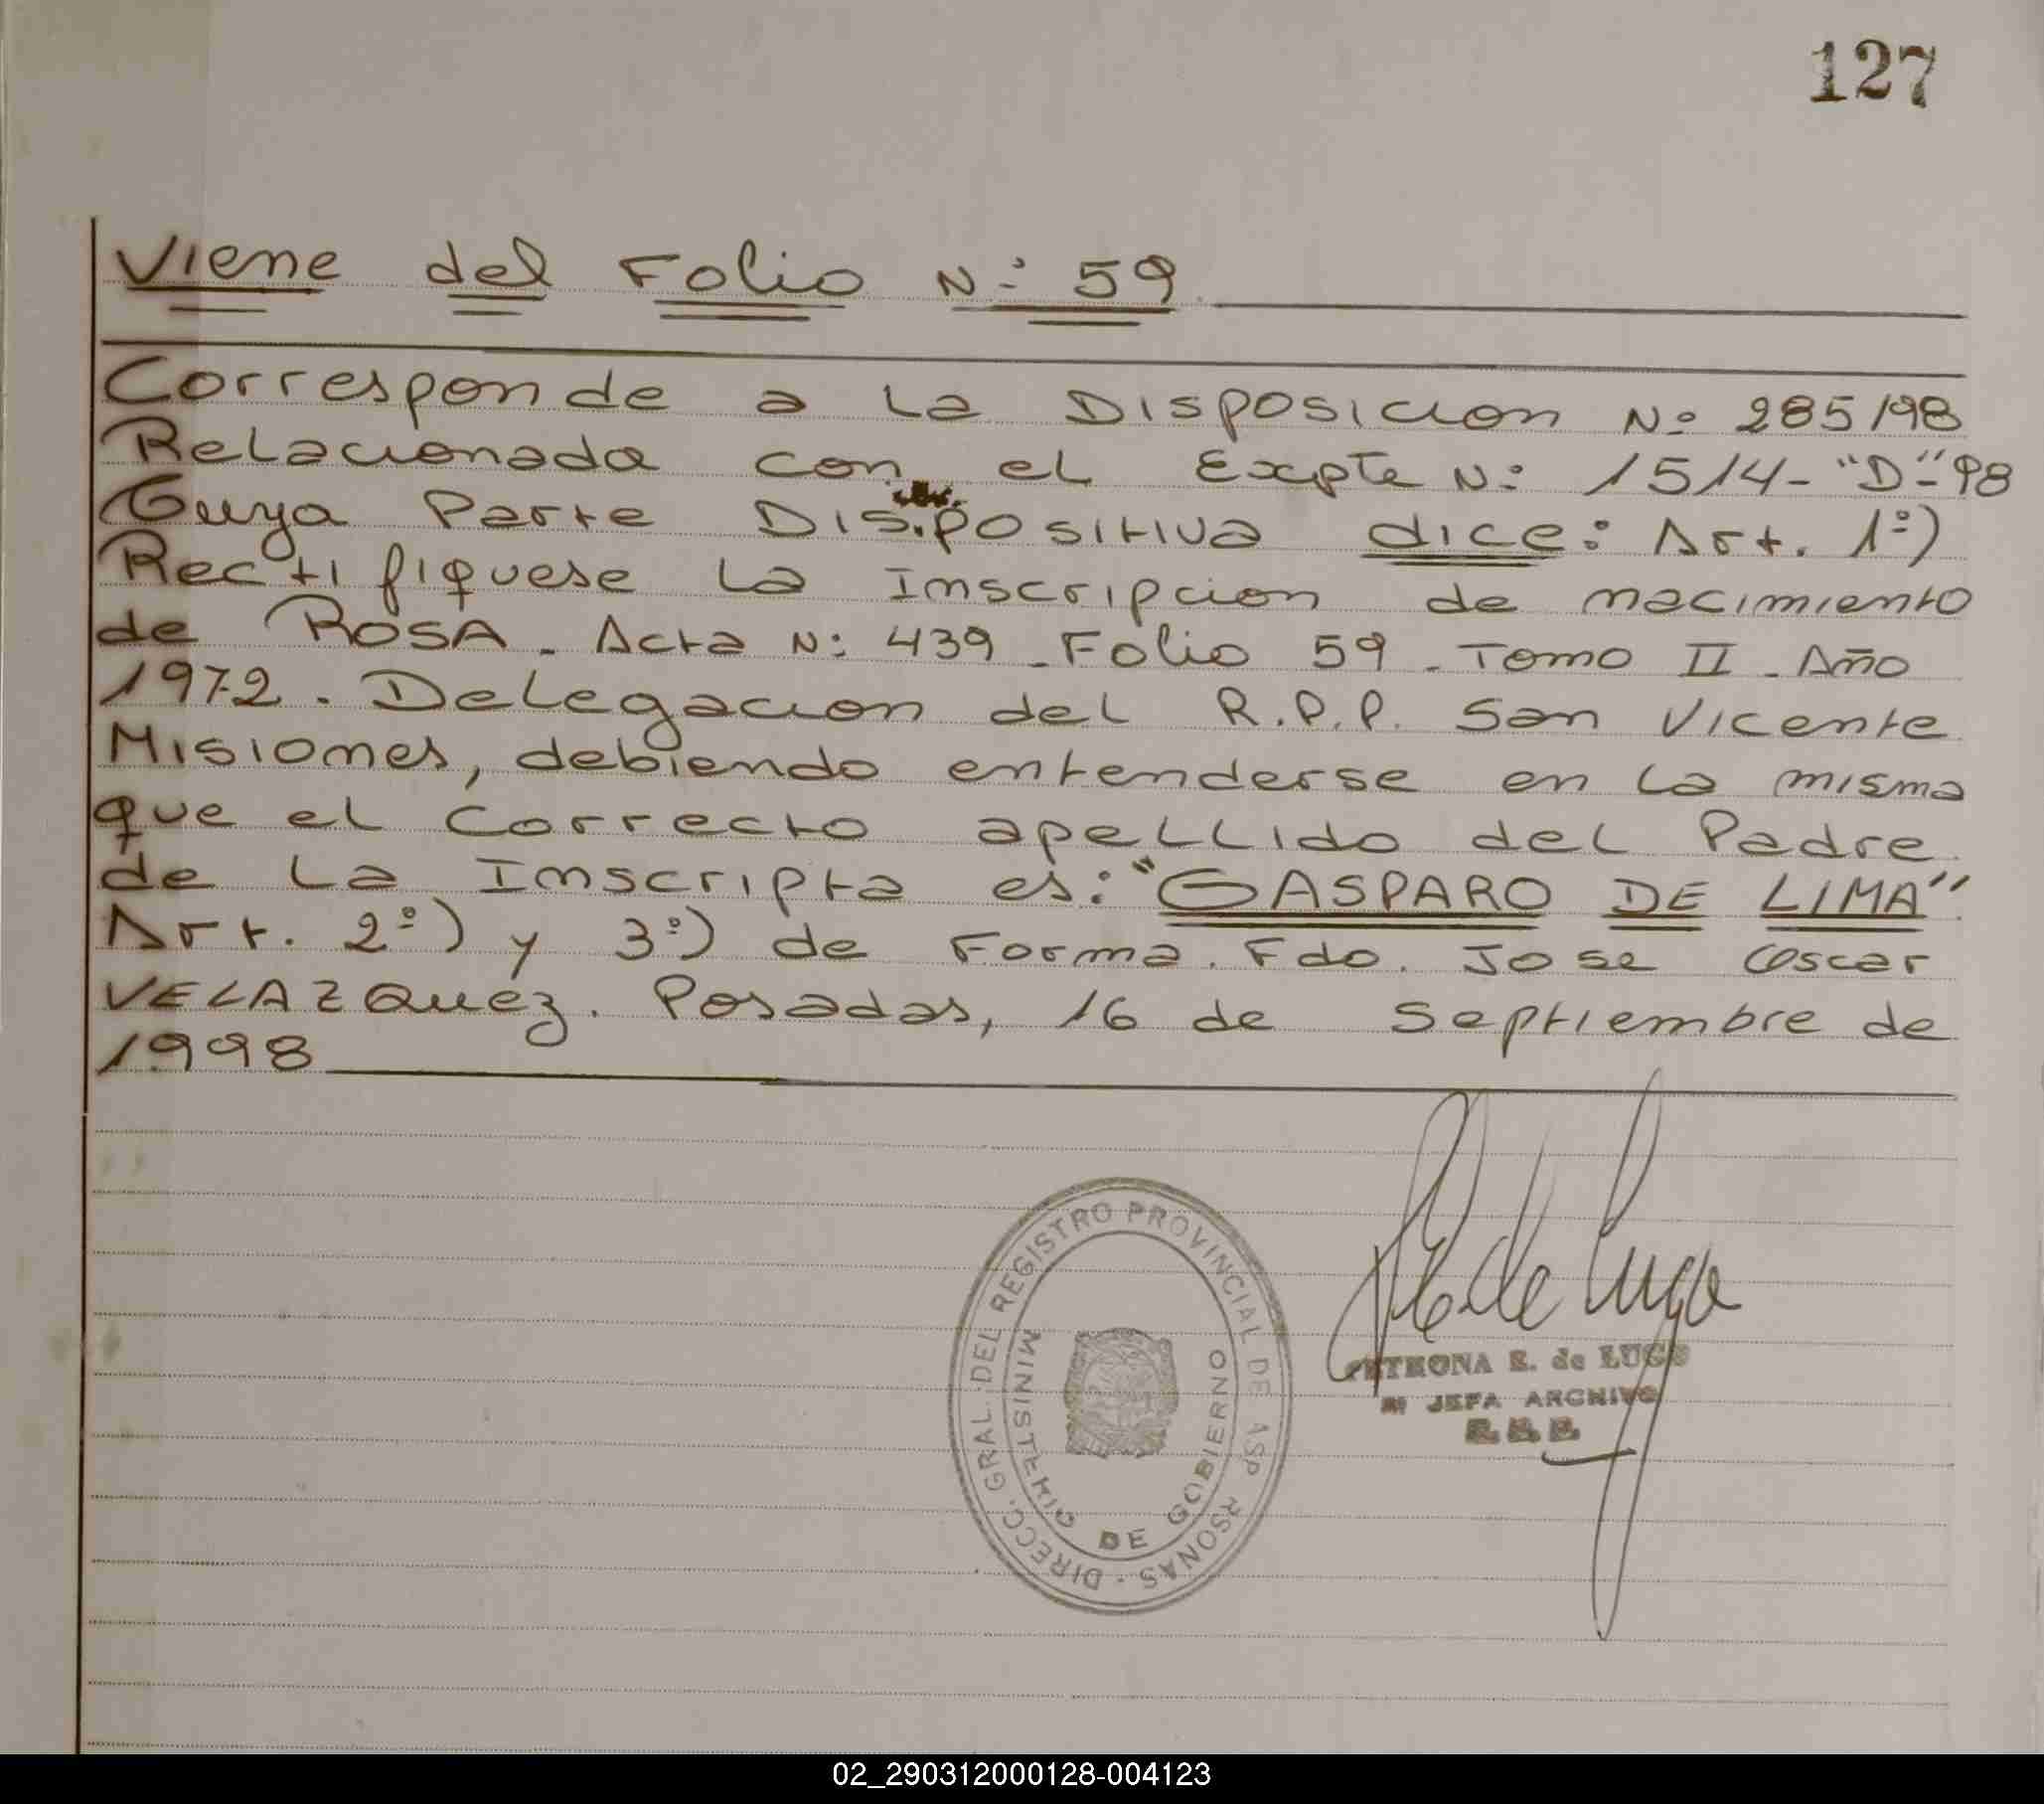 127
Viene del Folio N: 59
Corresponde a La Disposicion Nº 285/98
Relacionada con el Expte N: 1514-"D"-98
Cuya Parte Dispositiva dice: Art. 1º)
Rectifiquese La Inscripcion de nacimiento
de ROSA. Acta N: 439 - Folio 59 - Tomo II - Año
1972. Delegacion del R.P.P. San Vicente
Misiones, debiendo entenderse en la misma
que el Correcto apellido del Padre
de La Inscripta es: "GASPARO DE LIMA"
Art. 2º) y 3º) de Forma. Fdo. Jose Oscar
VELAZQuez. Posadas, 16 de Septiembre de
1998
DIRECC. GRAL. DEL REGISTRO PROVINCIAL DE ASP RSONAS -
MINISTERIO DE GOBIERNO
de Lugo
PETRONA E. de LUGO
JEFA ARCHIVO
02_290312000128-004123